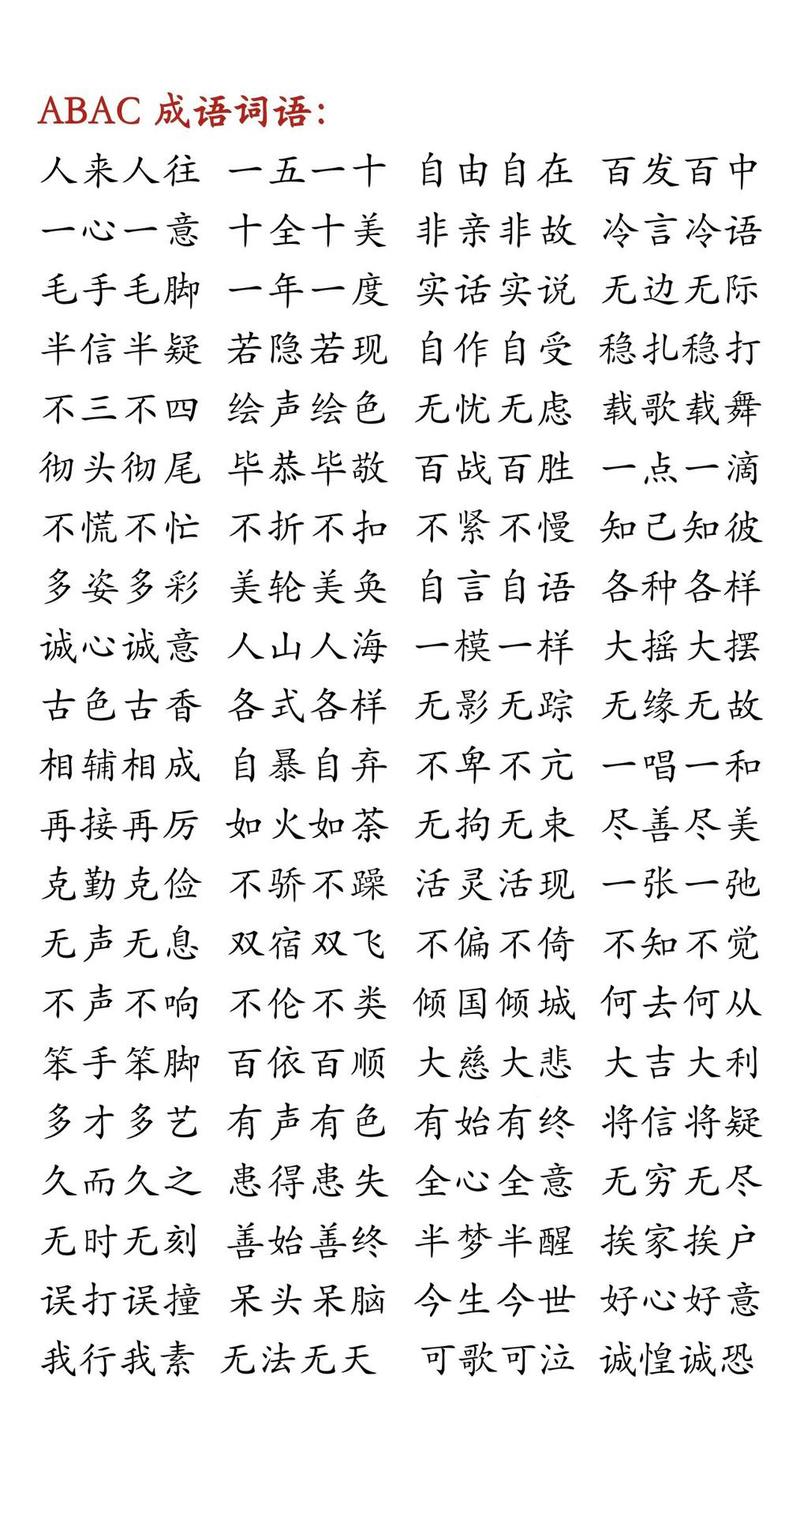 ABAC 成语词语：
人来人往 一五一十 自由自在 百发百中
一心一意 十全十美 非亲非故 冷言冷语
毛手毛脚 一年一度 实话实说 无边无际
半信半疑 若隐若现 自作自受 稳扎稳打
不三不四 绘声绘色 无忧无虑 载歌载舞
彻头彻尾 毕恭毕敬 百战百胜 一点一滴
不慌不忙 不折不扣 不紧不慢 知己知彼
多姿多彩 美轮美奂 自言自语 各种各样
诚心诚意 人山人海 一模一样 大摇大摆
古色古香 各式各样 无影无踪 无缘无故
相辅相成 自暴自弃 不卑不亢 一唱一和
再接再厉 如火如荼 无拘无束 尽善尽美
克勤克俭 不骄不躁 活灵活现 一张一弛
无声无息 双宿双飞 不偏不倚 不知不觉
不声不响 不伦不类 倾国倾城 何去何从
笨手笨脚 百依百顺 大慈大悲 大吉大利
多才多艺 有声有色 有始有终 将信将疑
久而久之 患得患失 全心全意 无穷无尽
无时无刻 善始善终 半梦半醒 挨家挨户
误打误撞 呆头呆脑 今生今世 好心好意
我行我素 无法无天 可歌可泣 诚惶诚恐